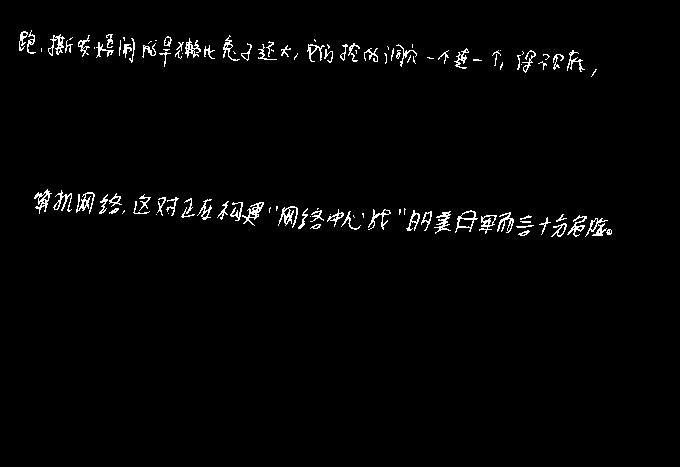 跑,撕笑𢙐闹的旱獭比兔子还大,它们挖的洞穴一个连一个,深不见底,
算机网络,这对正在构建“网络中心战”的美日军而言十分危险。